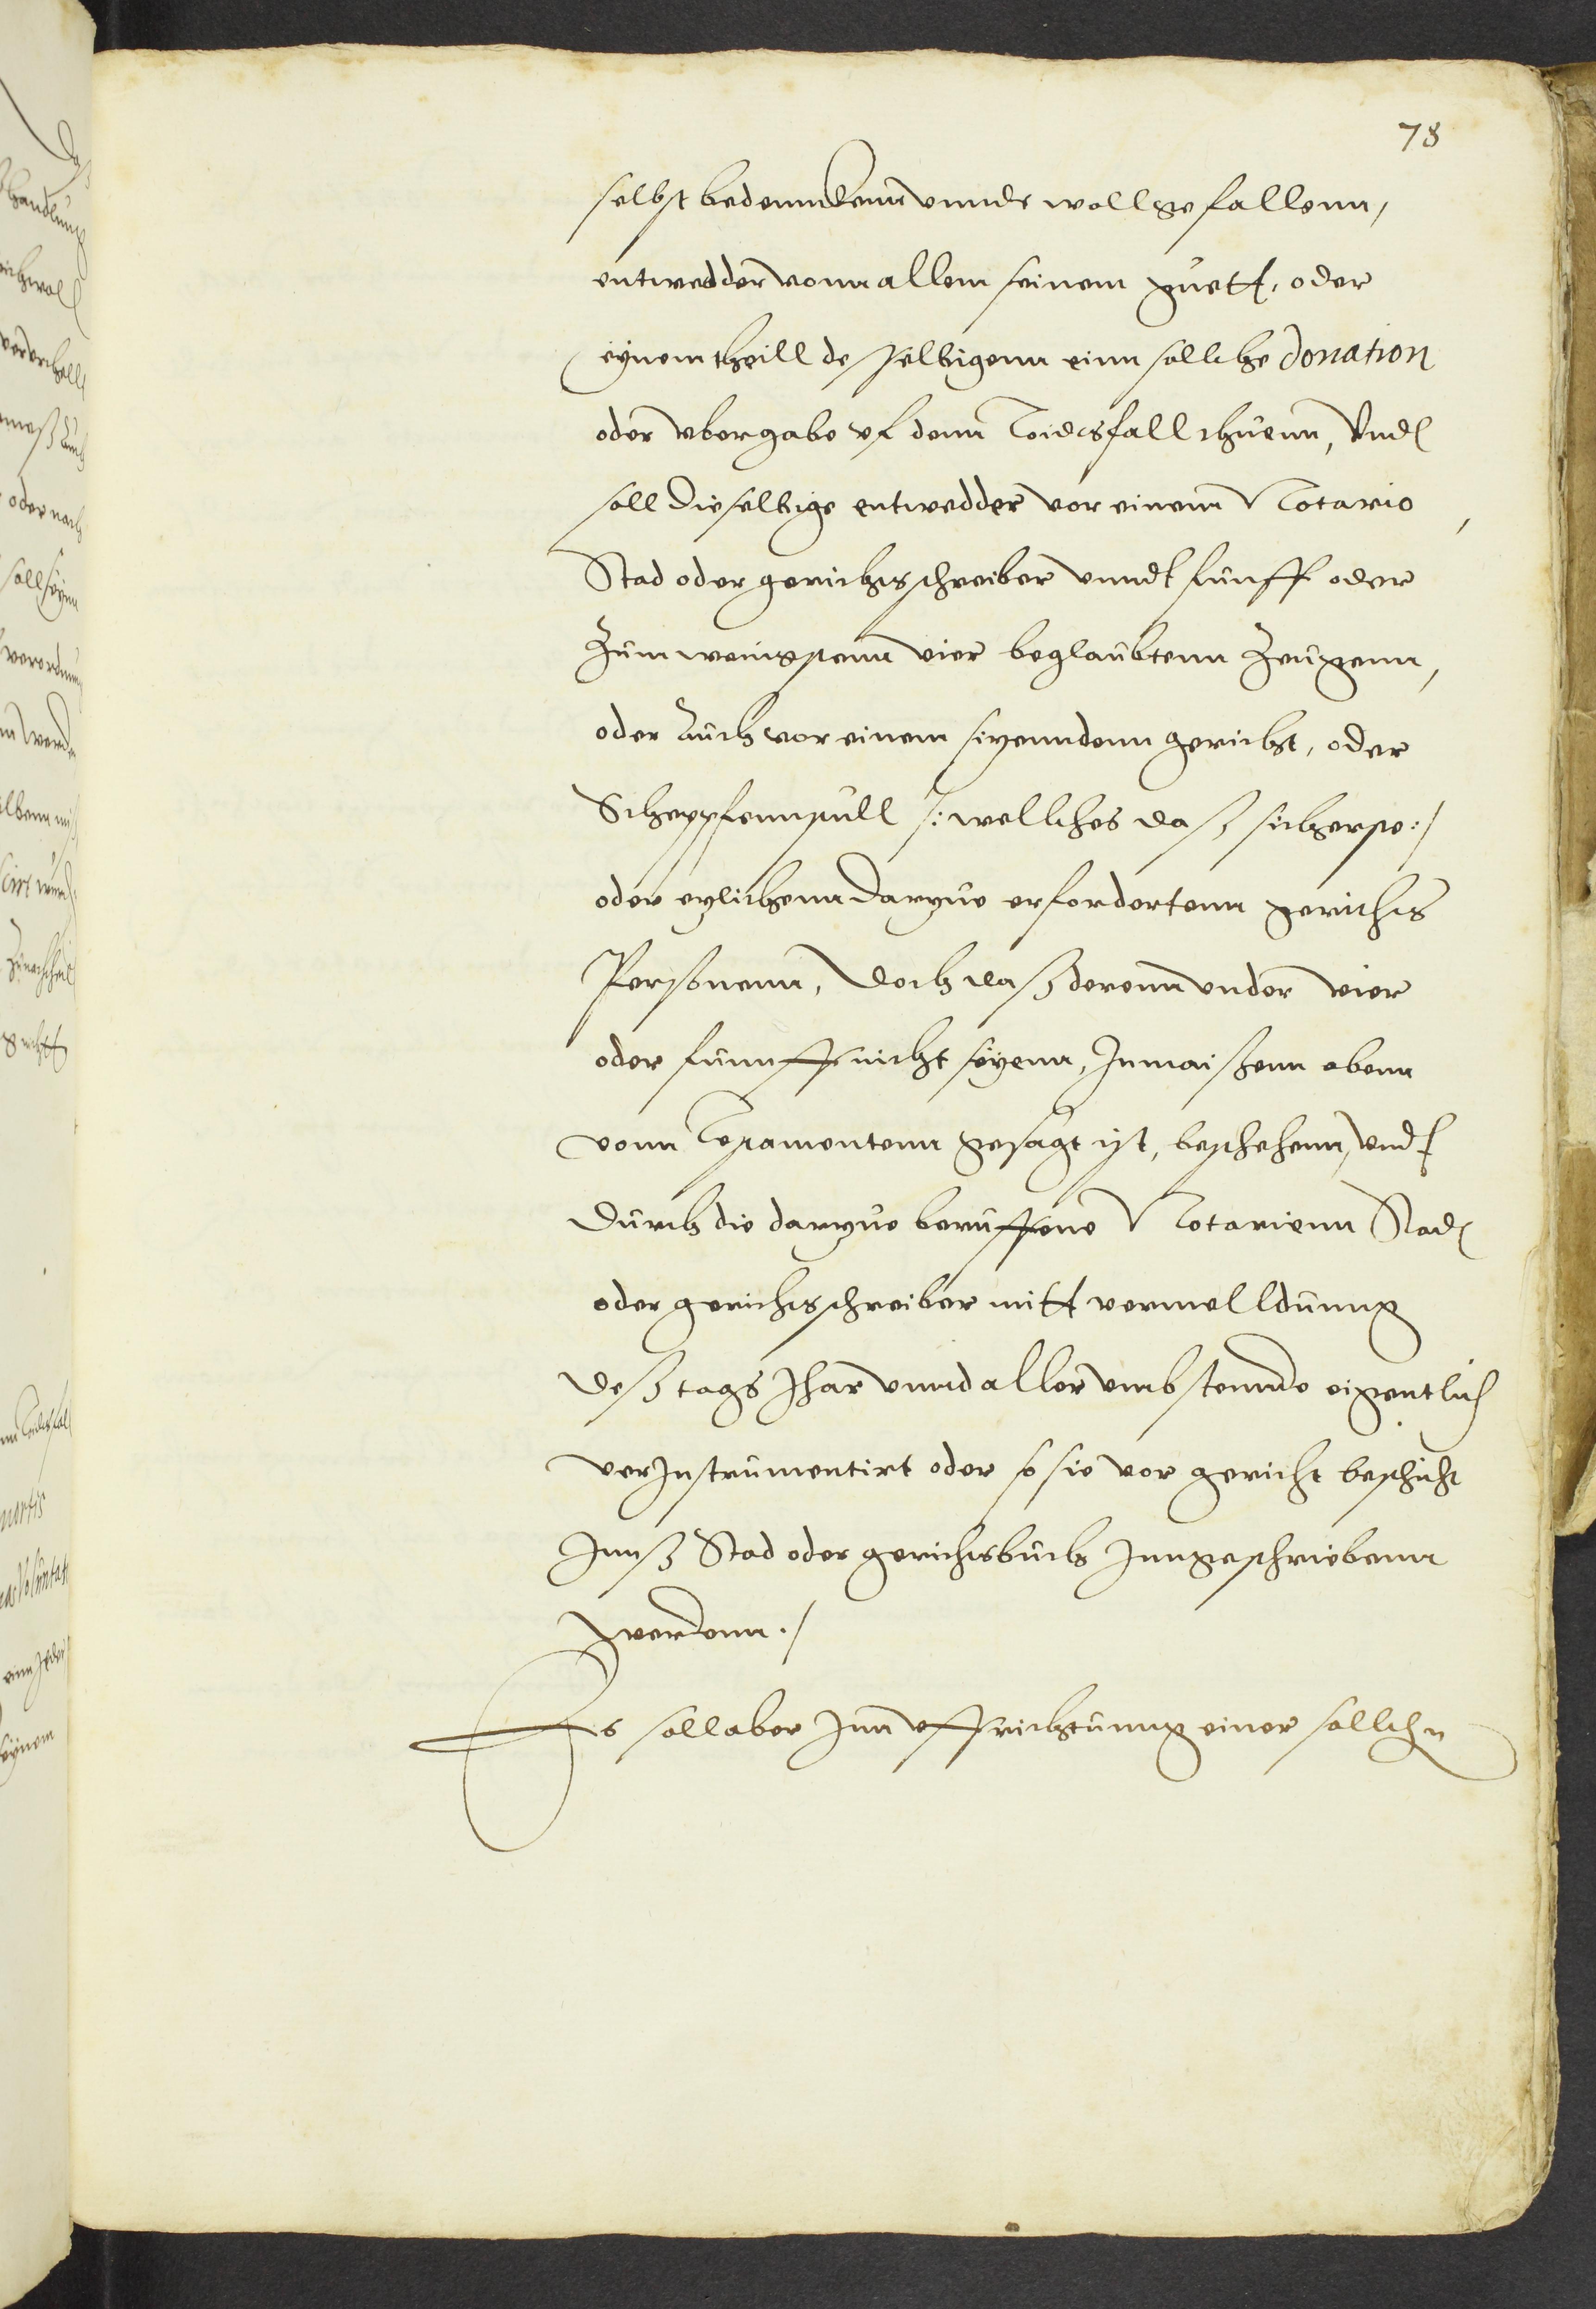 78
selbst bedennckenn vnnd wollgefallenn,
entwedder vonn allem seinem guett, oder
eynem theill desselbigenn einn sollche donation
oder vbergabe vf denn Toidtsfall thuenn, Vnd
soll dieselbige entwedder vor einem Notario,
Stad oder gerichtsschreiber vnndt funff oder
Zum weingstenn vier beglaubtenn Zeugenn,
oder Auch vor einem sizenndenn gericht, oder
Scheppfennstull /: wellches daß sicherste :/
oder ezlichenn darzue erfordertenn gerichts
Personenn, doch daß derenn vnder vier
oder funnff nicht seyenn, Inmaißenn obenn
vonn Testamentenn gesagt ist, beschehenn, vndt
durch die darzue beruffene Notarienn Stad
oder gerichtsschreiber mitt vermelldunng
deß tags Jhar vnnd aller vmbstennde eigentlich
verInstrumentirt oder so sie vor gericht beschicht
Innß Stad oder gerichtsbuch Inngeschriebenn
werdenn ./
Es soll aber Inn vffrichtunng einer sollchen